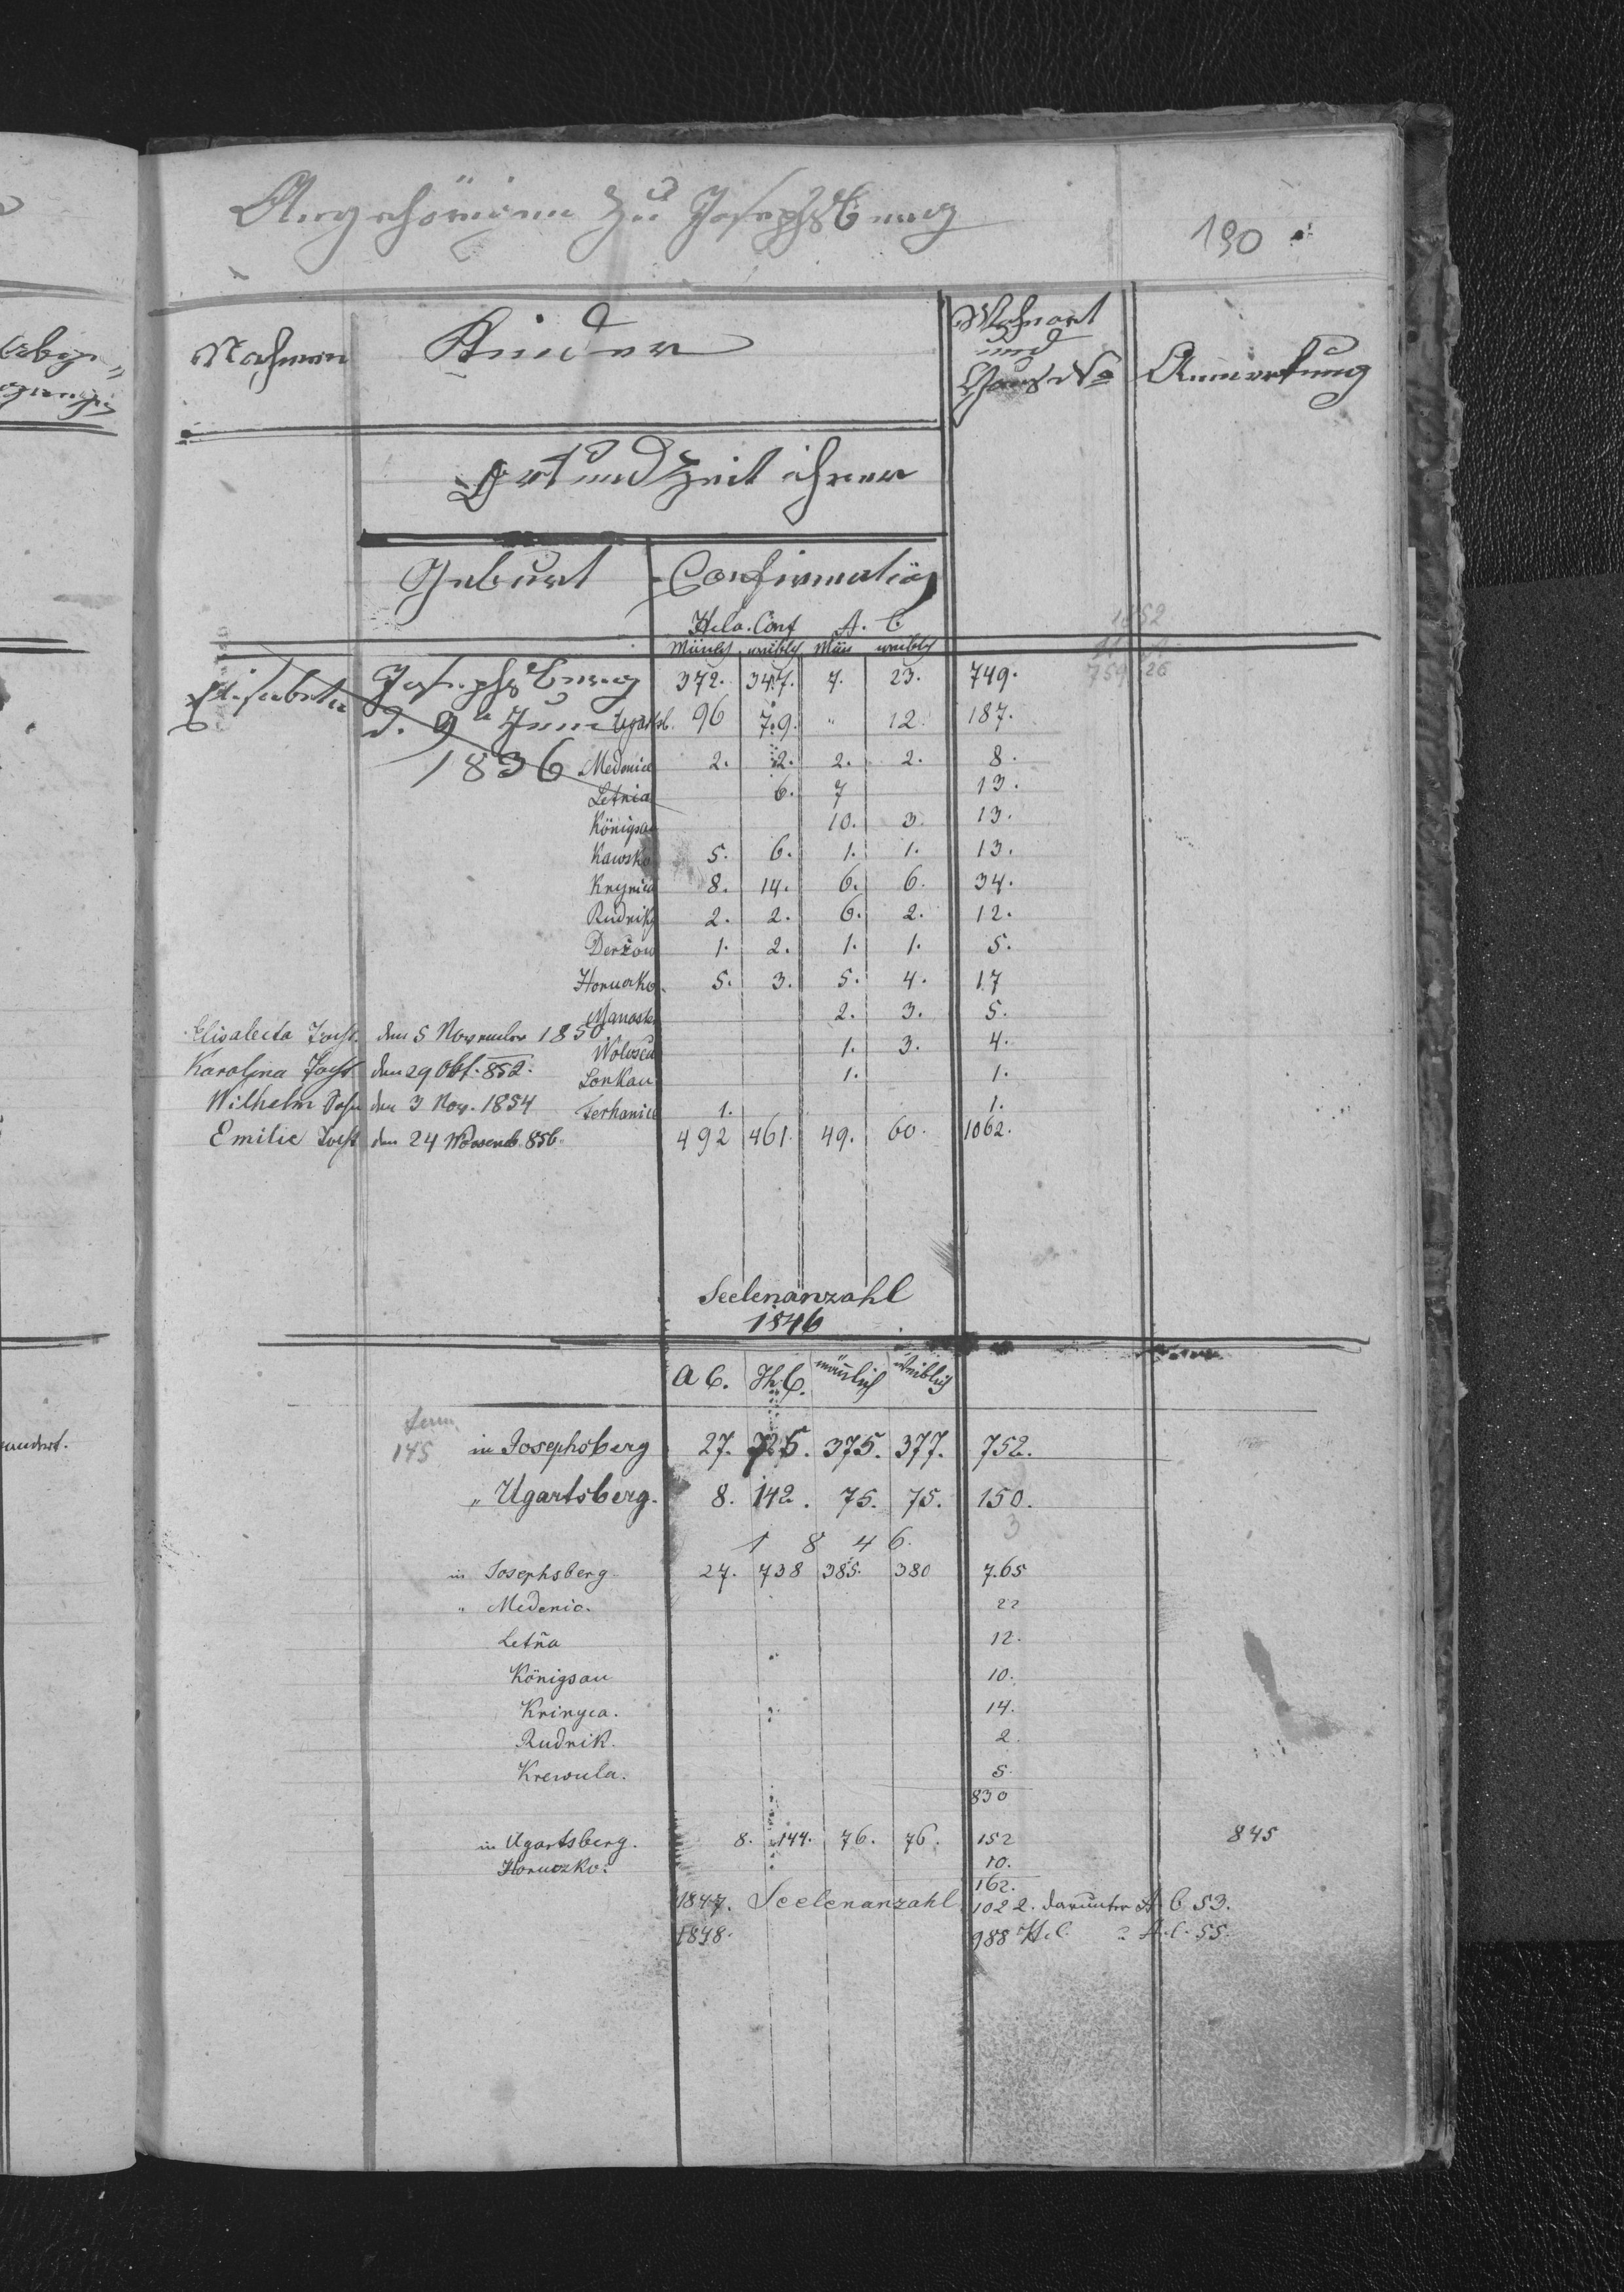 Angehörigen zu Josephsberg
190
Nahmen Kinder Wohnort und Haus No Anmerkung
Ort und Zeit ihrer
Geburt Confirmation
Helv. Conf A. C.
Mänlich weiblich Män weiblich
1852
Elisabeta Josephsberg 372. 347. 7. 23. 749. 759 26
d. 9t Juni Ugartsb. 96 79. " 12. 187.
1836 Medenice 2. 2. 2. 2. 8.
Letnia 6. 7 13.
Königsau 10. 3. 13.
Kawsko 5. 6. 1. 1. 13.
Krynica 8. 14. 6. 6. 34.
Rudnik 2. 2. 6. 2. 12.
Derżow 1. 2. 1. 1. 5.
Horucko. 5. 3. 5. 4. 17
Manaste 2. 3. 5.
Elisabeta Jost. den 5 November 1850
Woloscu 1. 3. 4.
Karolina Jost den 29 Okt. 852. Lonkau 1. 1.
Wilhelm den 3 Nov. 1854 1. 1.
Emilie Jost den 24 Novemb 856. 492 461. 49. 60. 1062.
Seelenanzahl
1846
A C. H.C. mänlich weiblich
145 in Josephsberg 27. 725. 375. 377. 752.
„ Ugartsberg. 8. 142. 75. 75. 150.
3
1 8 4 6.
in Josephsberg 27. 738 385. 380 765
" Medenic. 22
Letña 12.
Königsau 10.
Krinyca. 14.
Rudnik. 2.
Krewula. 5.
830
in Ugartsberg. 8. 144. 76. 76. 152 845
Horuczko. 10.
162.
1847. Seelenanzahl 1022. darunter A. C 53.
1848. 988 H.C. A.C. 55.